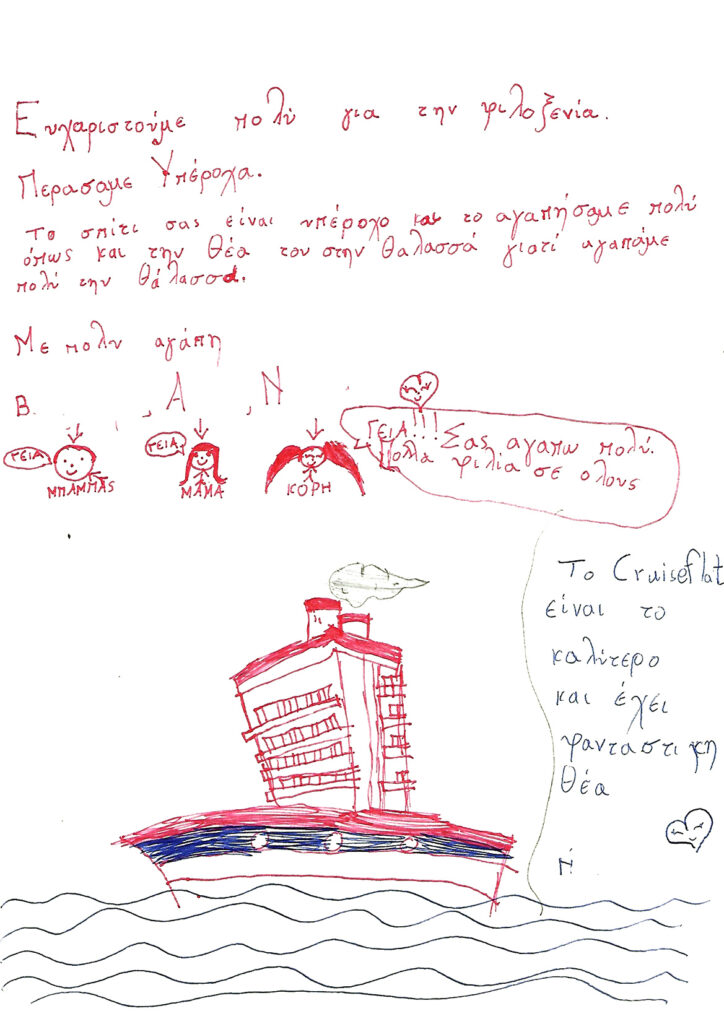 Ευχαριστούμε πολύ για την φιλοξενία.
Περασαμε Υπέροχα.
Το σπίτι σας είναι υπέροχο και το αγαπήσαμε πολύ
όπως και την θέα του στην θαλασσά γιατί αγαπάμε
πολύ την θάλασσα.
Με πολυ αγάπη
Β. , Α , Ν
ΓΕΙΑ
ΜΠΑΜΠΑΣ
ΓΕΙΑ
ΜΑΜΑ
ΚΟΡΗ
ΓΕΙΑ!!! Σας αγαπω πολύ.
Πολλα φιλία σε ολους
Το Cruiseflat
είναι το
καλύτερο
και έχει
φανταστικη
θέα
Ν